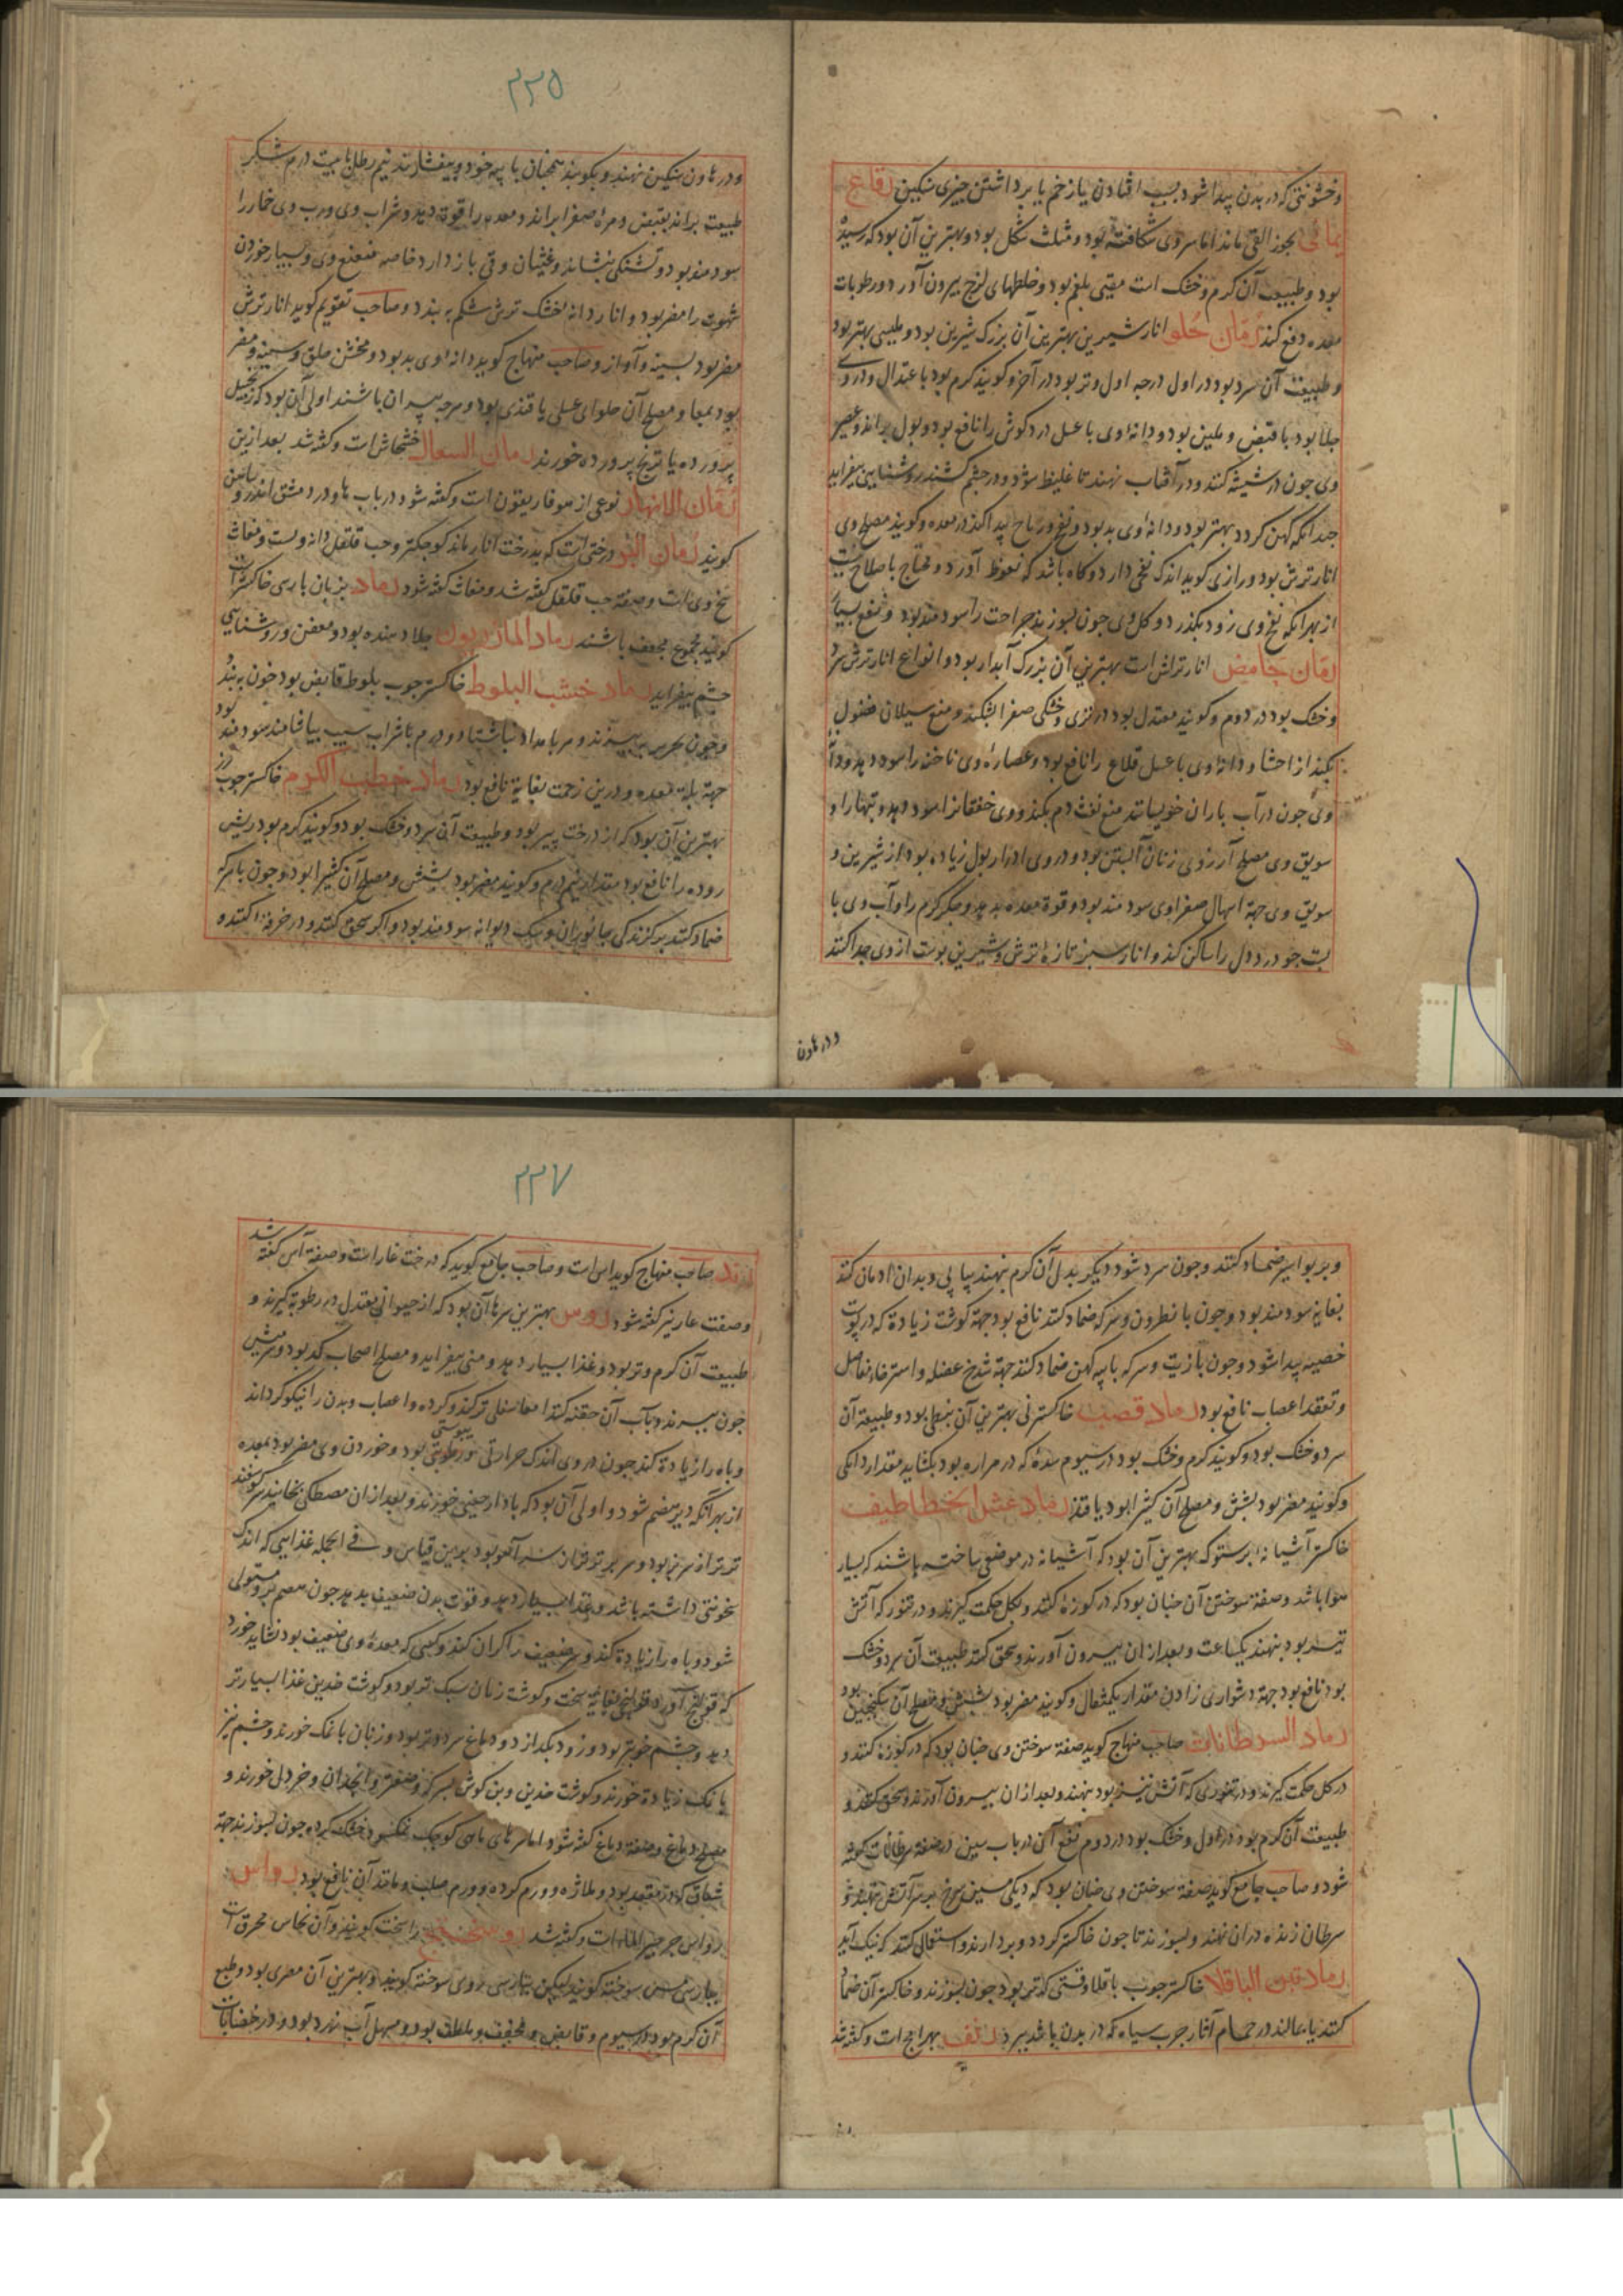 وخشونتی که در بدن پیدا شود بسبب افتادن یا زخم یا برداشتن چیزی سنکین رقاع
یمانی بجوز القی ماند اما سر وی شکافته بود و مثلث شکل بود و بهترین آن بود که رسیده
بود و طبیعت آن کرم و خشک است مقیی بلغم بود و خلطهای لزج بیرون آورد و رطوبات
معده دفع کند رمان حلو انار شیرین بهترین آن بزرک شیرین بود و طبیبی بهتر بود
و طبیعت آن سرد بود در اول درجه اول و تر بود در آخر و کویند کرم بود باعتدال و در وی
جلا بود با قبض و ملین بود و دانه وی با عسل درد کوش را نافع بود و بول براند و عصیر
وی چون در شیشه کنند و در آفتاب نهند تا غلیظ شود و در چشم کشند روشنایی بیفزاید
چندانکه کهن کردد بهتر بود و دانه وی بد بود و نفخ و ریاح پیدا کند در معده و کویند مصلح وی
انار ترش بود و رازی کوید اندک نفخی دارد و کاه باشد که نعوظ آورد و محتاج باصلاح نیست
از بهر آنکه نفخ وی زود بکذرد و کل وی چون بسوزند جراحت را سودمند بود و نفع بسیار
رمان حامض انار ترش است بهترین آن بزرک آبدار بود و انواع انار ترش سرد
و خشک بود در دوم و کویند معتدل بود در تری و خشکی صفرا بشکند و منع سیلان فضول
بکند از احشا و دانه وی با عسل قلاع را نافع بود و عصاره وی ناخنه را سود دهد و دانه
وی چون در آب باران خویسانند منع نفث دم بکند و وی خفقانرا سود دهد و تبها را و
سویق وی مصلح آرزوی زنان آبستن بود و در وی ادرار بول زیاده بود از شیرین و
سویق وی جهة اسهال صفراوی سودمند بود و قوة معده بدهد و جکر کرم را و آب وی با
پست جو درد دل را ساکن کند و انار سبز تازه ترش و شیرین پوست از وی جدا کنند
ودر هاون
۲۲۵
ودر هاون سنکین نهند و بکوبند همچنان با پیه خود و بیفشارند نیم رطل با بیست درم شکر
طبیعت براند بقبض و مره صفرا براند و معده را قوة دهد و شراب وی و رب وی خمار را
سودمند بود و تشنکی بنشاند و غثیان و قی باز دارد خاصه منعنع وی و بسیار خوردن
شهوت را مضر بود و انار دانه خشک ترش شکم به بندد و صاحب تقویم کوید انار ترش
مضر بود بسینه و آواز و صاحب منهاج کوید دانه وی بد بود و مخشن حلق و سینه و مضر
بود بمعا و مصلح آن حلوای عسلی یا قندی بود و هرچه پیران باشند اولی آن بود که زنجبیل
پرورده یا ترنج پرورده خورند رمان السعال خشخاش است و کفته شد بعد ازین
رمان الانهار نوعی از هوفاریقون است و کفته شود در باب ها و در دمشق اندروسامن
کویند رمان البر درختی است که بدرخت انار ماند کوچکتر و حب قلقل دانه ویست و مغاث
بیخ وی است و صفة حب قلقل کفته شد و مغاث کفته شود رماد بزبان پارسی خاکستر است
کویند مجموع مجفف باشند رماد المازریون جلا دهنده بود و معفن و روشنایی
چشم بیفزاید رماد خشب البلوط خاکستر چوب بلوط قابض بود خون به بندد
و چون بحریر ببیزند و هر بامداد ناشتا دو درم با شراب سیب بیاشامند سودمند بود
جهة بله معده و درین زحمت بغایة نافع بود رماد حطب الکرم خاکستر چوب رز
بهترین آن بود که از درخت پیر بود و طبیعت آن سرد و خشک بود و کویند کرم بود ریش
روده را نافع بود مقدار نیم درم و کویند مضر بود بشش و مصلح آن کثیرا بود و چون با سرکه
ضماد کنند بر کزندکی جانوران و سک دیوانه سودمند بود و اکر سحق کنند و در خرقه آکنده
و بر بواسیر ضماد کنند و چون سرد شود دیکر بدل آن کرم بنهند پیاپی و بدان ادمان کنند
بغایة سودمند بود و چون با نطرون و سرکه ضماد کنند نافع بود جهة کوشت زیادة که در پوست
خصیه پیدا شود و چون با زیت و سرکه یا پیه کهن ضماد کنند جهة شدخ عضله و استرخاء مفاصل
و تعقد اعصاب نافع بود رماد قصب خاکستر نی بهترین آن نبطی بود و طبیعة آن
سرد و خشک بود و کویند کرم و خشک بود در سیوم سده که در مراره بود بکشاید مقدار دانکی
و کویند مضر بود بشش و مصلح آن کثیرا بود یا قند رماد عش الخطاطیف
خاکستر آشیانه برستوک بهترین آن بود که آشیانه در موضعی ساخته باشند که بسیار
هوا باشد و صفة سوختن آن چنان بود که در کوزه کنند و بکل حکمت کیرند و در تنور که آتش
تیز بود بنهند یکساعت و بعد از ان بیرون آورند و سحق کنند طبیعت آن سرد و خشک
بود نافع بود جهة دشواری زادن مقدار یکمثقال و کویند مضر بود بشش و مصلح آن سکنجبین بود
رماد السرطانات صاحب منهاج کوید صفة سوختن وی چنان بود که در کوزه کنند و
در کل حکمت کیرند و در تنوری که آتش تیز بود بنهند و بعد از ان بیرون آورند و سحق کنند و
طبیعت آن کرم بود در اول و خشک بود در دوم نفع آن در باب سین در صفة سرطانات کفته
شود و صاحب جامع کوید صفة سوختن وی چنان بود که دیکی مسین سرخ بر سر آتش بنهند و
سرطان زنده در ان نهند و بسوزند تا چون خاکستر کردد و بردارند و استعمال کنند که نیک آید
رماد تبن الباقلا خاکستر چوب باقلا وقتی که تر بود چون بسوزند و خاکستر آن ضماد
کنند یا بمالند در حمام آثار جرب سیاه که در بدن باشد ببرد رنف بهرامج است و کفته شد
۲۲۷
رند صاحب منهاج کوید آس است و صاحب جامع کوید که درخت غار است و صفة آس کفته شد
و صفت غار نیز کفته شود روس بهترین سرها آن بود که از حیوانی معتدل در رطوبة کیرند و
طبیعت آن کرم و تر بود و غذا بسیار دهد و منی بیفزاید و مصلح اصحاب کد بود و سر میش
چون بپزند و بآب آن حقنه کنند امعا سفلی تر کند و کرده و اعصاب و بدن را نیکو کرداند
و باه را زیادة کند چون در وی اندک حرارتی و رطوبتی بود و خوردن وی مضر بود بمعده
یبوستی
از بهر آنکه دیر هضم شود و اولی آن بود که با دارچینی خورند و بعد از ان مصطکی بخایند سر کوسفند
تر تر از سر بز بود و سر بز تر تر از سر آهو بود برین قیاس و فی الجمله غذایی که اندک
سخونتی داشته باشد و غذا بسیار دهد و قوت بدن ضعیف بدهد چون هضم بر و مستولی
شود و باه را زیادة کند و سر ضعیف را کران کند و کسی که معده وی ضعیف بود نشاید خورد
که قولنج آورد قولنجی بغایة سخت و کوشت زبان سبک تر بود و کوشت خدین غذا بسیارتر
دهد و چشم خوبتر بود و زود بکذارد و دماغ سردتر بود و زبان با نمک خورند و چشم نیز
با نمک زیادة خورند و کوشت خدین و بن کوش بسرکه و صعتر و انجدان و خردل خورند و
مصلح دماغ و صفة دماغ کفته شود و اما سرهای ماهی کوچک نمکسود خشک کرده چون بسوزند جهة
شقاق که در مقعد بود و لهازه و ورم کرده و ورم صلب و مانند آن نافع بود رواس
رواس جرجیر الماء است و کفته شد روسختج راسخت کویند و آن نحاس محرق است
بپارسی مس سوخته کویند لیکن بپارسی روی سوخته کویند و بهترین آن مصری بود و طبع
آن کرم بود در سیوم و قابض و مجفف و ملطف بود و مسهل آب زرد بود و در خضابات